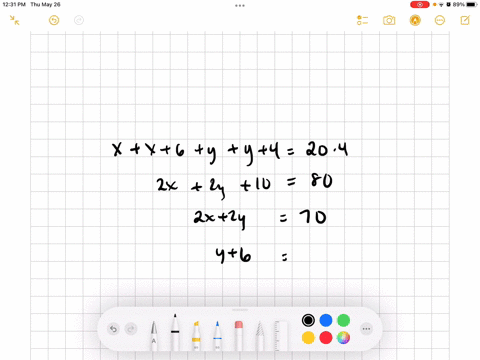 12:31 PM Thu May 26
89%
x + x + 6 + y + y + 4 = 20 · 4
2x + 2y + 10 = 80
2x + 2y = 70
y + 6 =